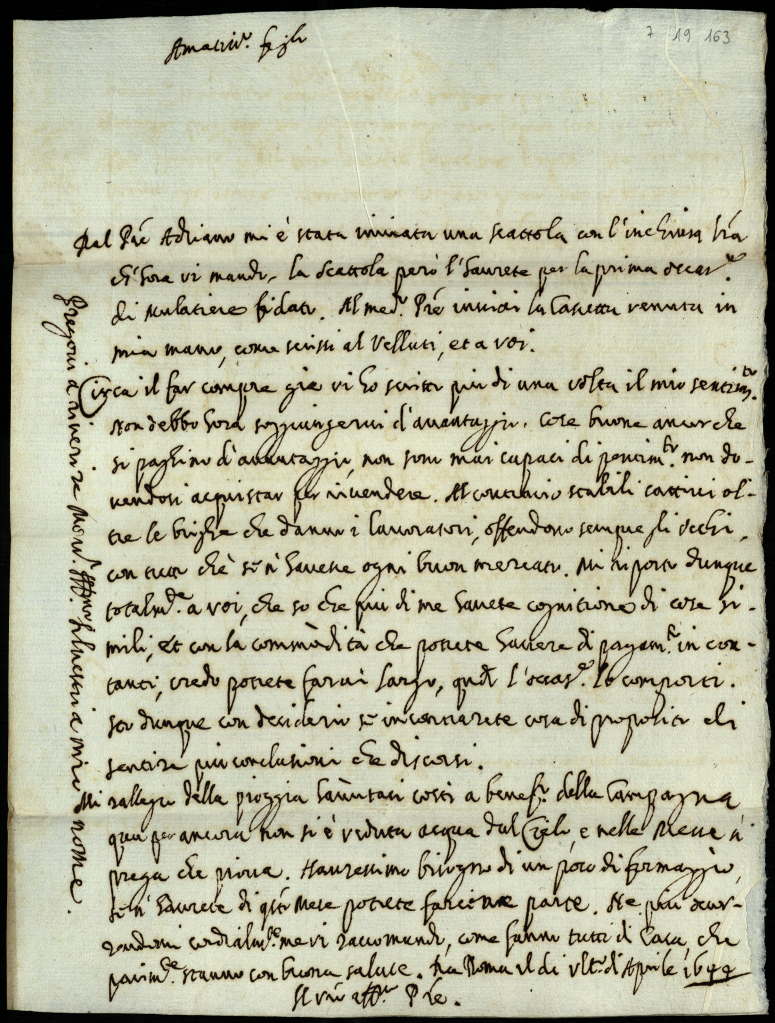 7 19 163
Amatiss.º figlio
Dal Pre Adriano mi è stata inviata una scattola con l'inchiusa l'ra
ch'hora vi mando, la scattola però l'haurete per la prima occas.e
di mulatiere fidato. Al med.º Pre inviai la Casetta venuta in
mia mano, come scrissi al Velluti, et a voi.
Circa il far compre già vi ho scritto più di una volta il mio sentim.to
Non debbo hora soggiungervi d'avantaggio. Cose buone ancor che
si paghino d'avantaggio, non sono mai capaci di pentim.to non do-
vendosi acquistar per rivendere. Al contrario stabili cattivi ol-
tre le brighe che danno i lavoratori, offendono sempre gli occhi,
con tutto che se n'havesse ogni buon mercato. Mi riporto dunque
totalm.e a voi, che so che più di me havete cognitione di cose si-
mili, et con la commodità che potrete havere di pagam.ti in con-
tanti, credo potrete farvi largo, qudo l'occas.e lo comporti.
Sto dunque con desiderio se incontrarete cosa di proposito di
sentire più conclusioni che discorsi.
Mi rallegro della pioggia havutasi costì a benef.º della Campagna
qua per ancora non si è veduta acqua dal Cielo, e nelle Messe si
prega che piova. Hauressimo bisogno di un poco di formaggio,
se n'haurete di qsto Mese potrete farcene parte. Ne più occor-
rendomi cordialm.e me vi raccomando, come fanno tutti di Casa, che
parim.e stanno con buona salute. Da Roma il dì ult.º di Aprile
Il vro aff.mo Pre.
a mio nome.